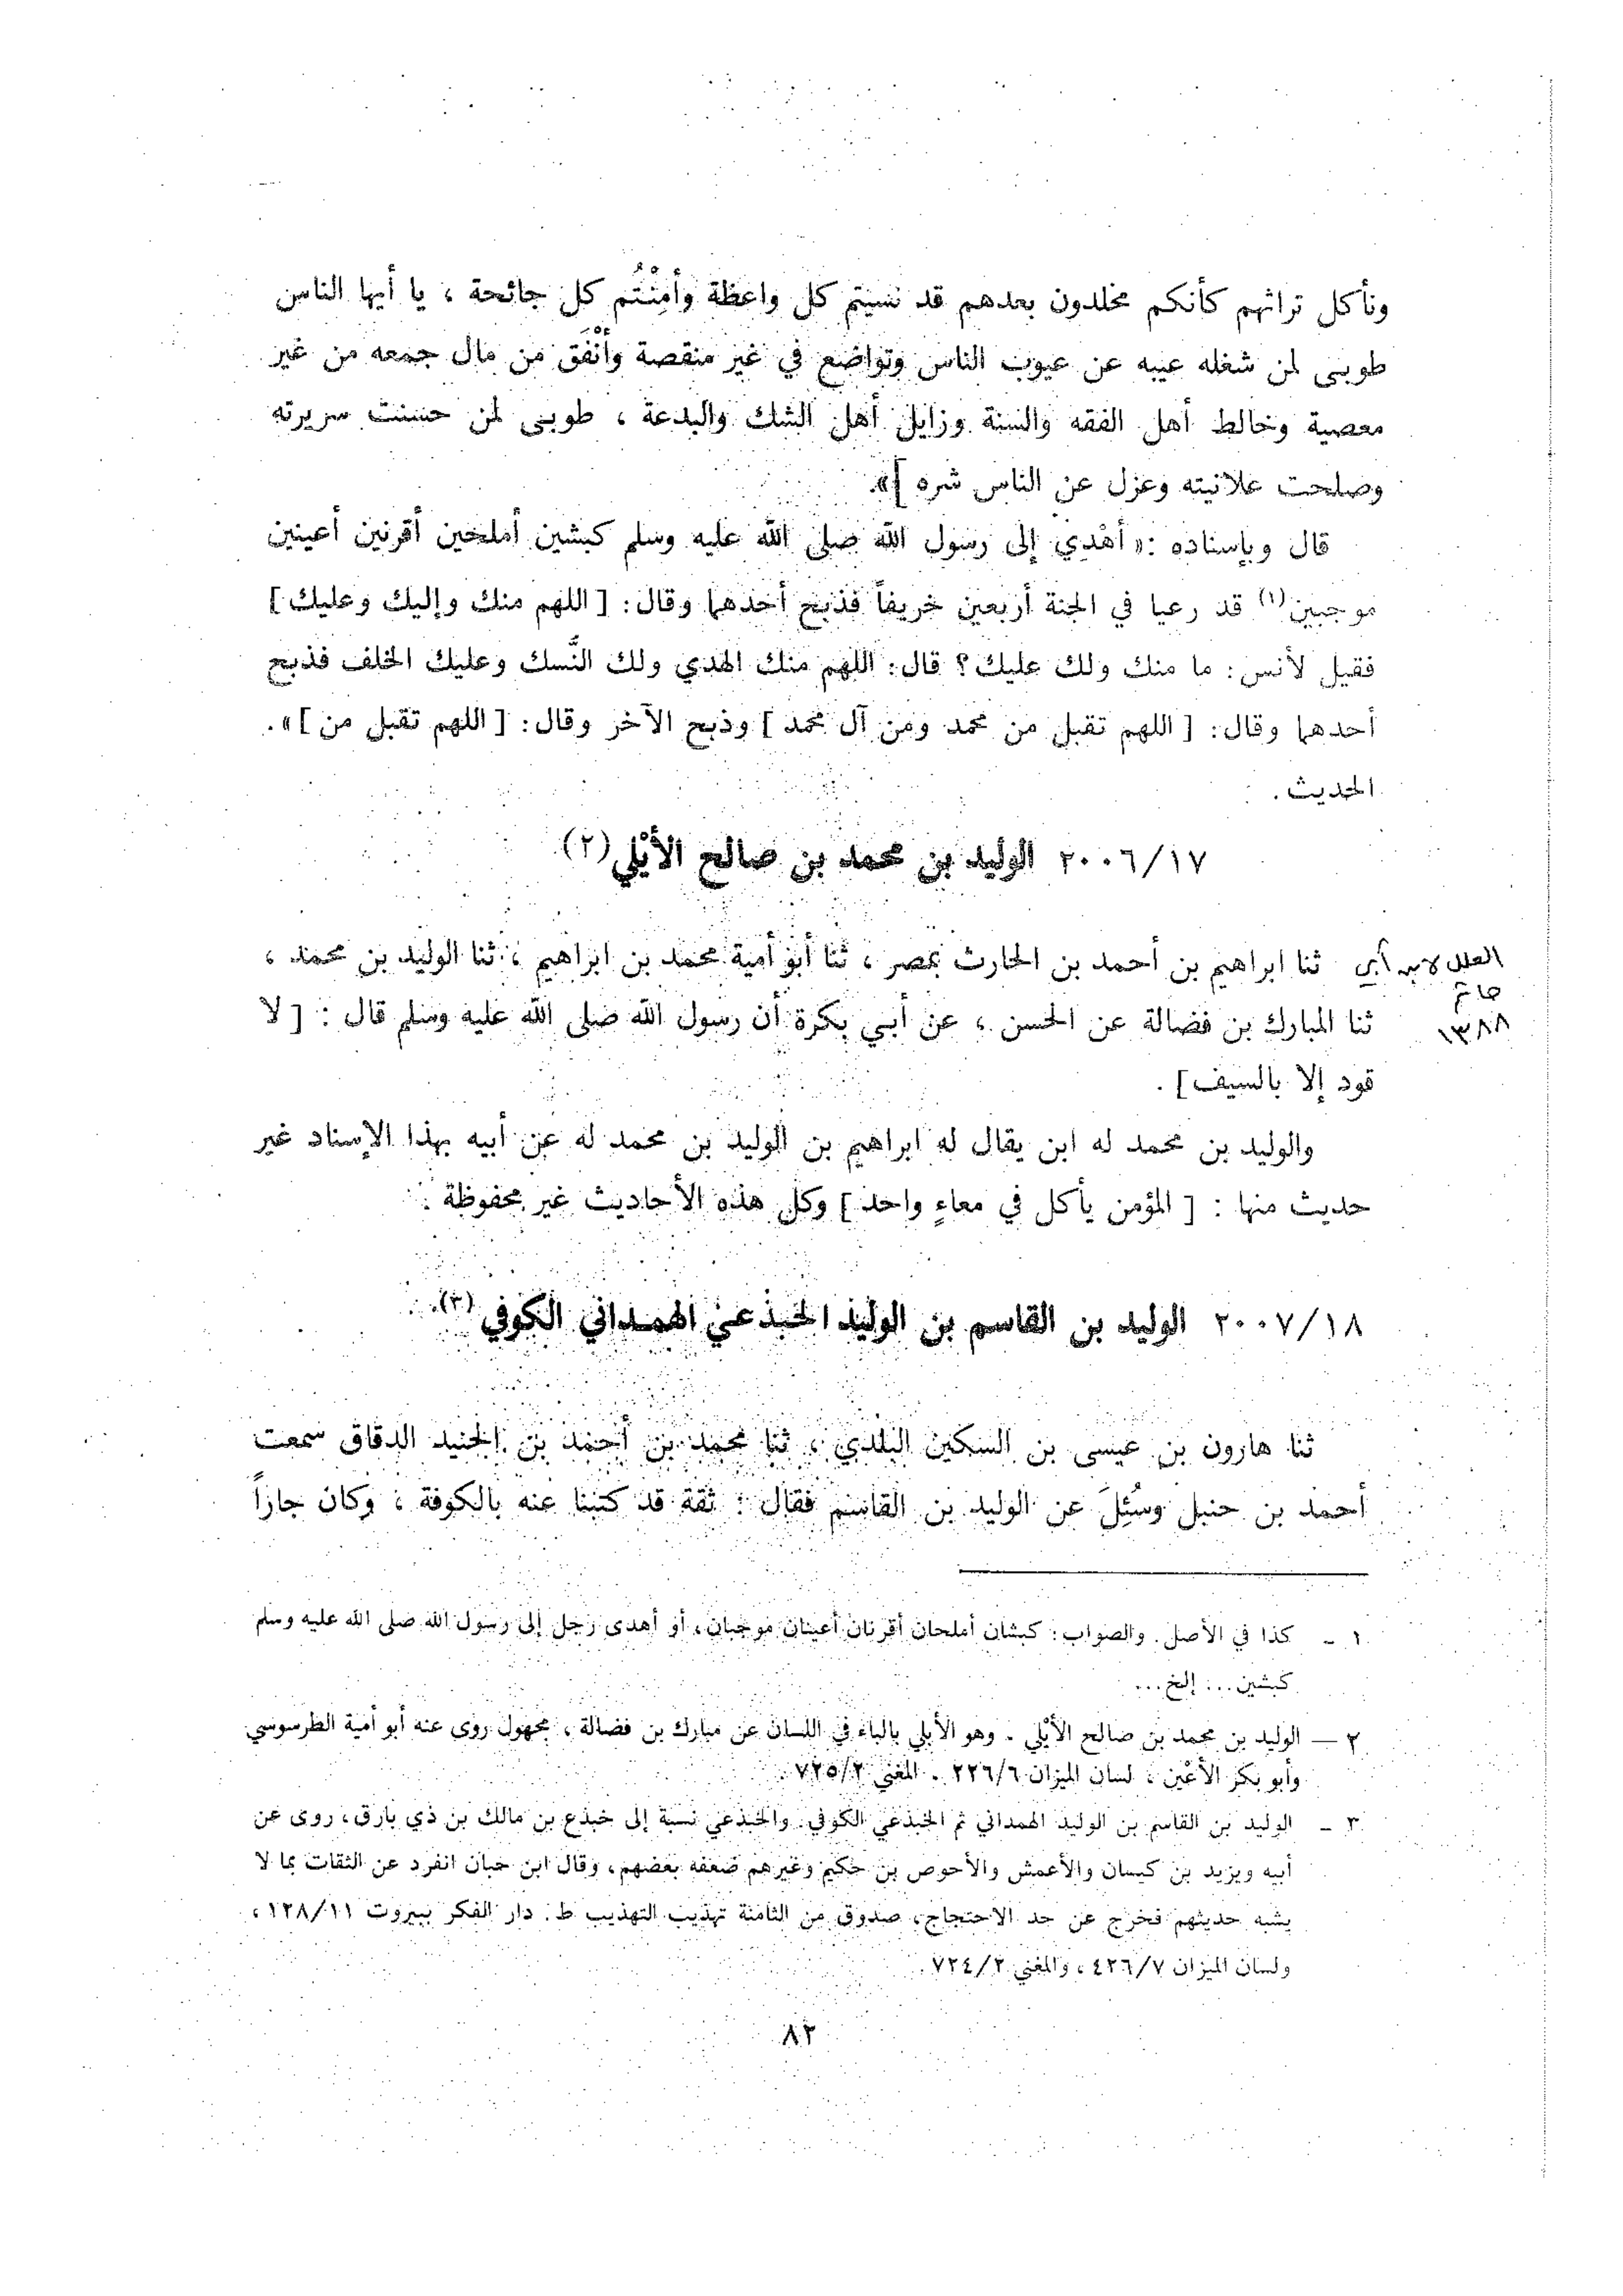 ونأكل تراثهم كأنكم مخلدون بعدهم قد نسيتم كل واعظة وأمِنْتُم كل جائحة ، يا أيها الناس
طوبى لمن شغله عيبه عن عيوب الناس وتواضع في غير منقصة وأنْفَق من مال جمعه من غير
معصية وخالط أهل الفقه والسنة وزايل أهل الشك والبدعة ، طوبى لمن حسنت سريرته
وصلحت علانيته وعزل عن الناس شره ]».
قال وبإسناده :« أهْدِي إلى رسول الله صلى الله عليه وسلم كبشين أملحين أقرنين أعينين
موجبين(١) قد رعيا في الجنة أربعين خريفاً فذبح أحدهما وقال: [ اللهم منك وإليك وعليك ]
فقيل لأنس: ما منك ولك عليك؟ قال: اللهم منك الهدي ولك النَّسك وعليك الخلف فذبح
أحدهما وقال: [ اللهم تقبل من محمد ومن آل محمد ] وذبح الآخر وقال: [ اللهم تقبل من ]».
الحديث .
٢٠٠٦/١٧ الوليد بن محمد بن صالح الأيْلي(٢)
العلل لابن أبي
حاتم
١٣٨٨
ثنا ابراهيم بن أحمد بن الحارث بمصر ، ثنا أبو أمية محمد بن ابراهيم ، ثنا الوليد بن محمد ،
ثنا المبارك بن فضالة عن الحسن ، عن أبي بكرة أن رسول الله صلى الله عليه وسلم قال : [ لا
قود إلا بالسيف ] .
والوليد بن محمد له ابن يقال له ابراهيم بن الوليد بن محمد له عن أبيه بهذا الإسناد غير
حديث منها : [ المؤمن يأكل في معاءٍ واحد ] وكل هذه الأحاديث غير محفوظة .
٢٠٠٧/١٨ الوليد بن القاسم بن الوليد الخبذعي الهمداني الكوفي(٣).
ثنا هارون بن عيسى بن السكين البلدي ، ثنا محمد بن أحمد بن الجنيد الدقاق سمعت
أحمد بن حنبل وسُئِلَ عن الوليد بن القاسم فقال : ثقة قد كتبنا عنه بالكوفة ، وكان جازاً
١ - كذا في الأصل. والصواب: كبشان أملحان أقرنان أعينان موجبان، أو أهدى رجل إلى رسول الله صلى الله عليه وسلم
كبشين... إلخ...
٢ — الوليد بن محمد بن صالح الأيْلي . وهو الأبلي بالباء في اللسان عن مبارك بن فضالة ، مجهول روى عنه أبو أمية الطرسوسي
وأبو بكر الأعْين ، لسان الميزان ٢٢٦/٦ . المغني ٧٢٥/٢ .
٣ - الوليد بن القاسم بن الوليد الهمداني ثم الخبذعي الكوفي. والخبذعي نسبة إلى خبذع بن مالك بن ذي بارق، روى عن
أبيه ويزيد بن كيسان والأعمش والأحوص بن حكيم وغيرهم ضعفه بعضهم، وقال ابن حبان انفرد عن الثقات بما لا
يشبه حديثهم فخرج عن حد الاحتجاج، صدوق من الثامنة تهذيب التهذيب ط. دار الفكر ببيروت ١٢٨/١١ ،
ولسان الميزان ٤٢٦/٧ ، والمغني ٧٢٤/٢ .
٨٢